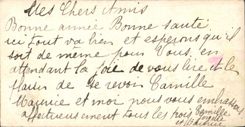 Mes Chers Amis
Bonne année Bonne santé
ici tout va bien et espérons qu'il
soit de même pour vous, en
attendant la joie de vous lire et le
plaisir de se revoir Camille
Maurice et moi nous vous embrassons
affectueusement tous les trois Camille